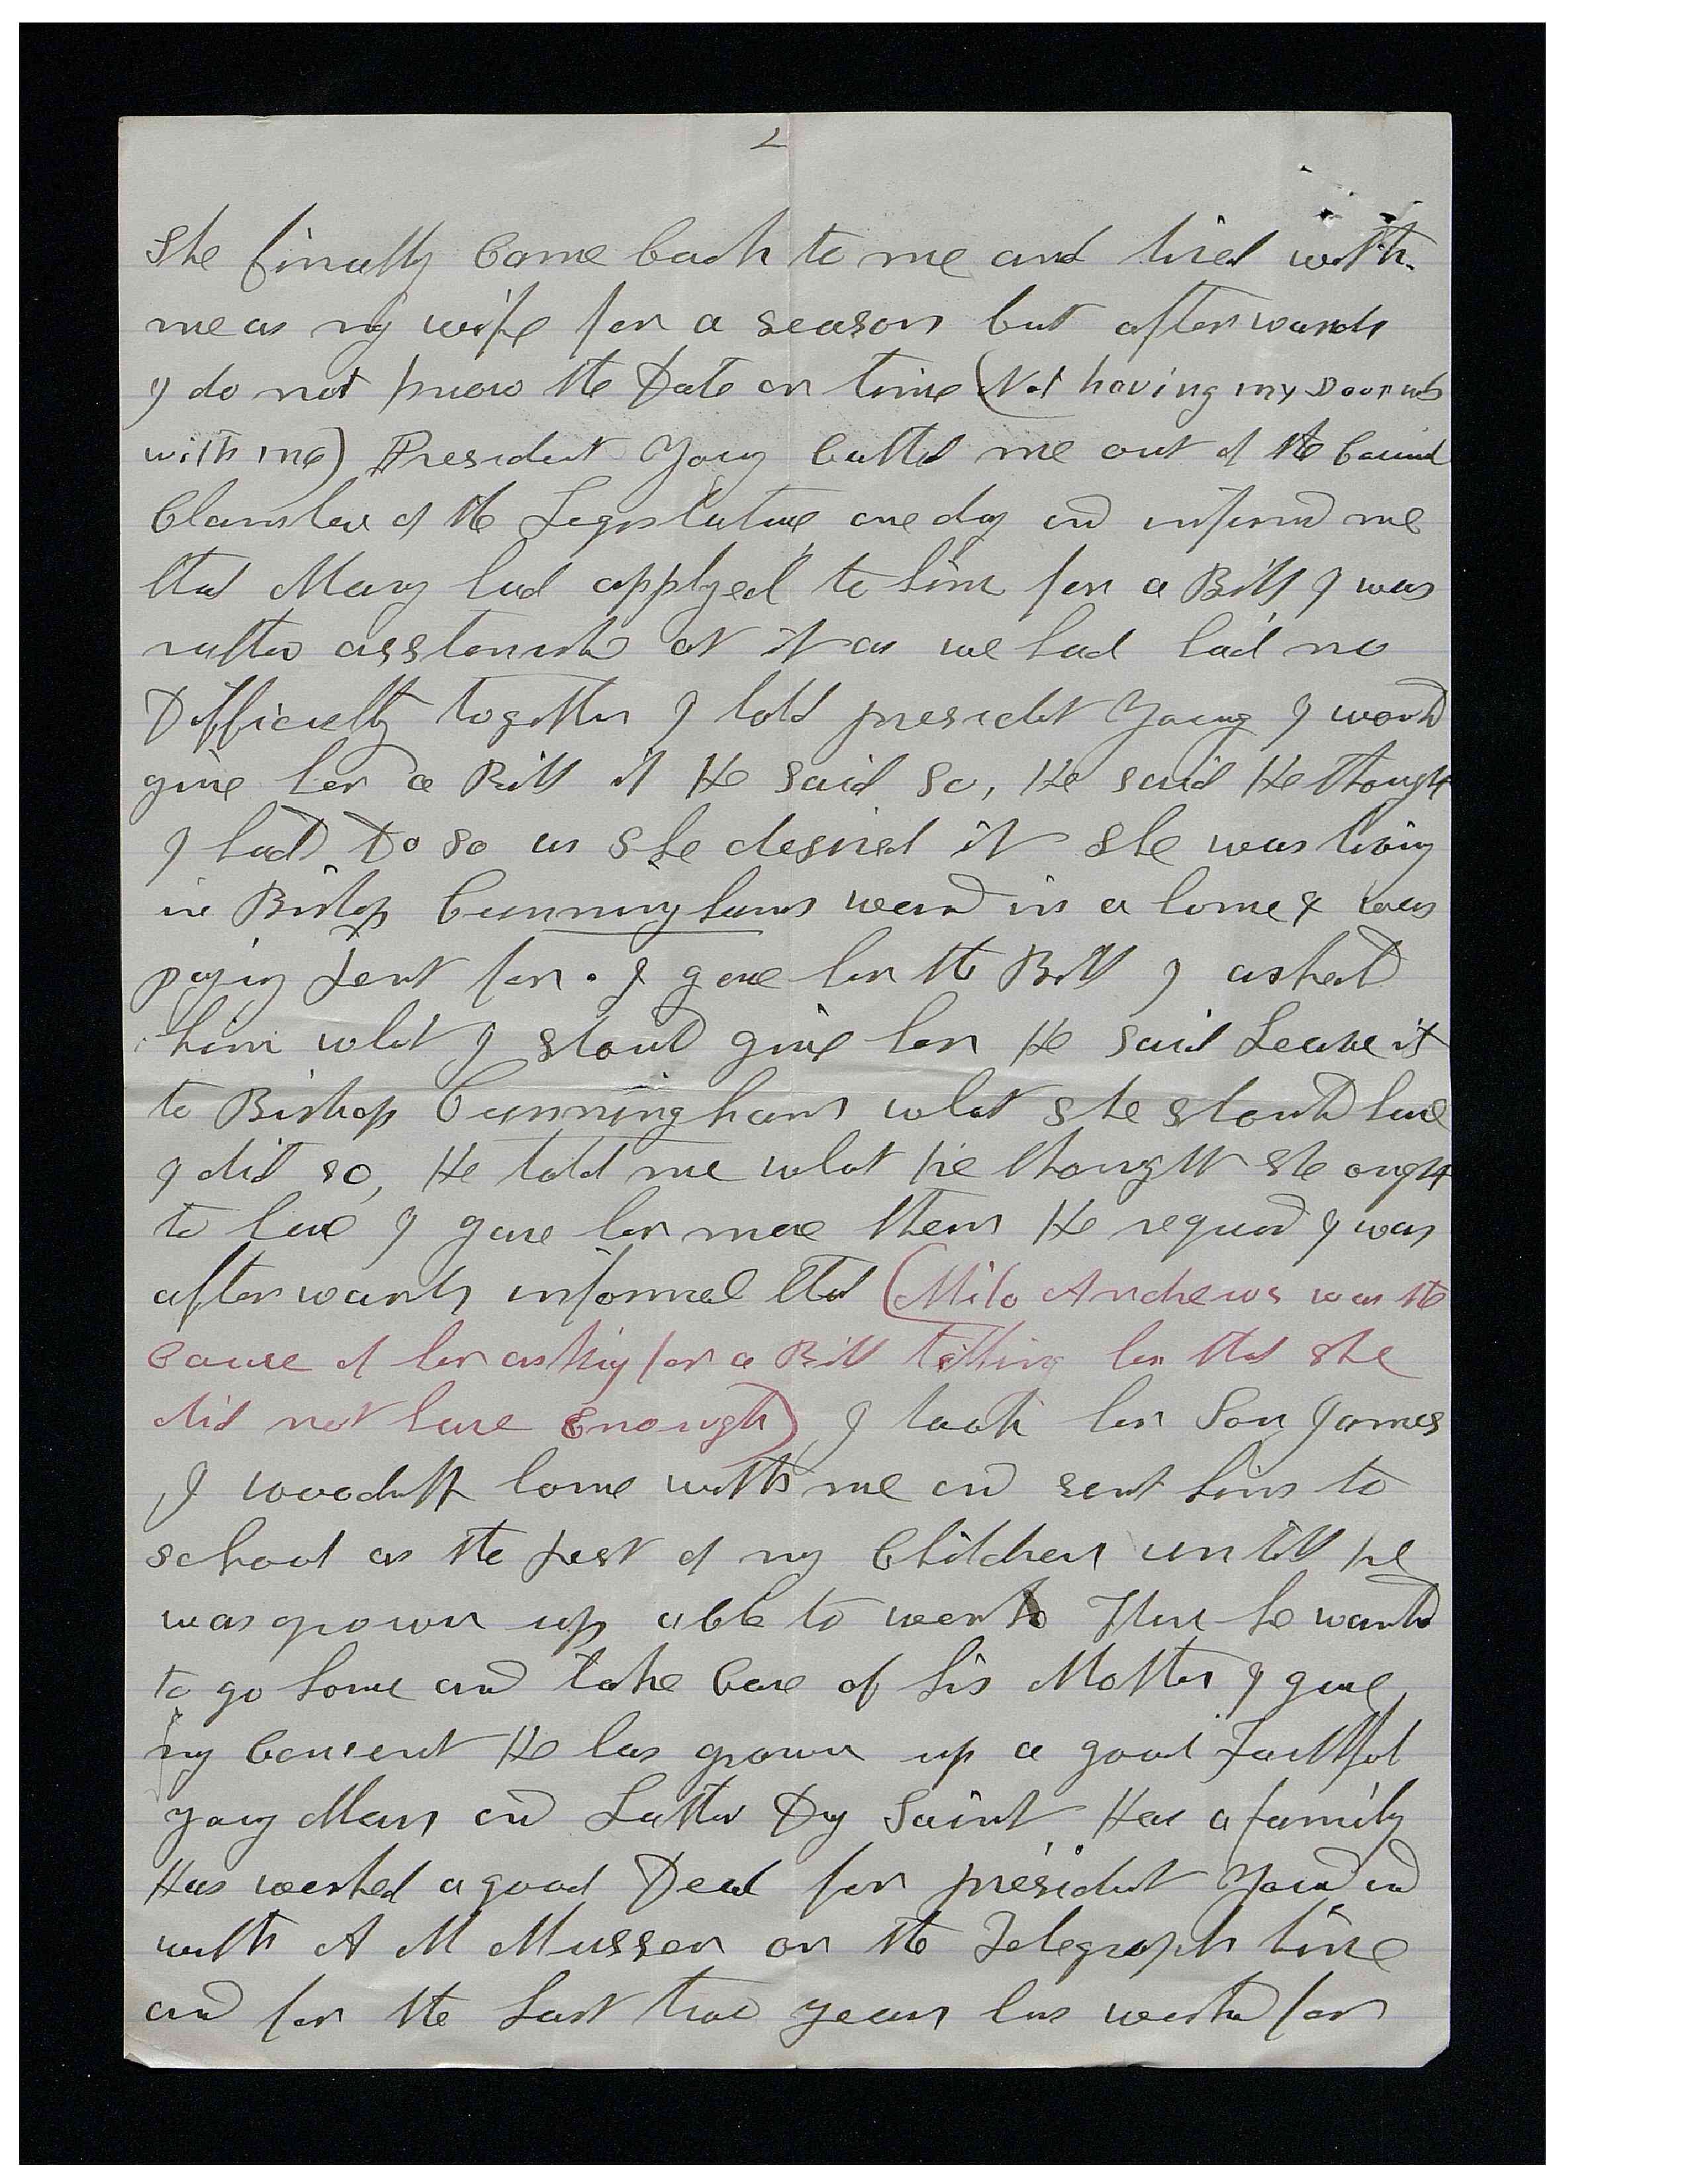 2
She finally Came back to me and lived with
me as my wife for a season but afterwards
I do not know the Date or time (Not having my Journals
with me) President Young Called me out of the Council
Chamber of the Legislature one day and informd me
that Mary had applyed to him for a Bill I was
rather asstonished at it as we had had no
Difficulty together I told president Young I would
give her a Bill if He said so, He said He thought
I had Do so as she desired it she was living
in Bishop Cunninghams ward in a home I was
paying Rent for. I gave her the Bill I asked
him what I should give her He said Leave it
to Bishop Cunningham what she should have
I did so, He told me what he thought she ought
to have I gave her more then He requird I was
afterwards informed that (Milo Andrews was the
Cause of her asking for a Bill telling her that she
did not have Enough) I took her Son James
J Woodruff home with me and sent him to
school as the rest of my Children untill he
was grown up able to work Then he wanted
to go home and take Care of his Mother I gave
my Concent He has grown up a good Faithful
young Man and Latter Day Saint Has a family
Has worked a good Deal for president Young and
with A M Musser on the Telegraph line
and for the Last two years has worked for